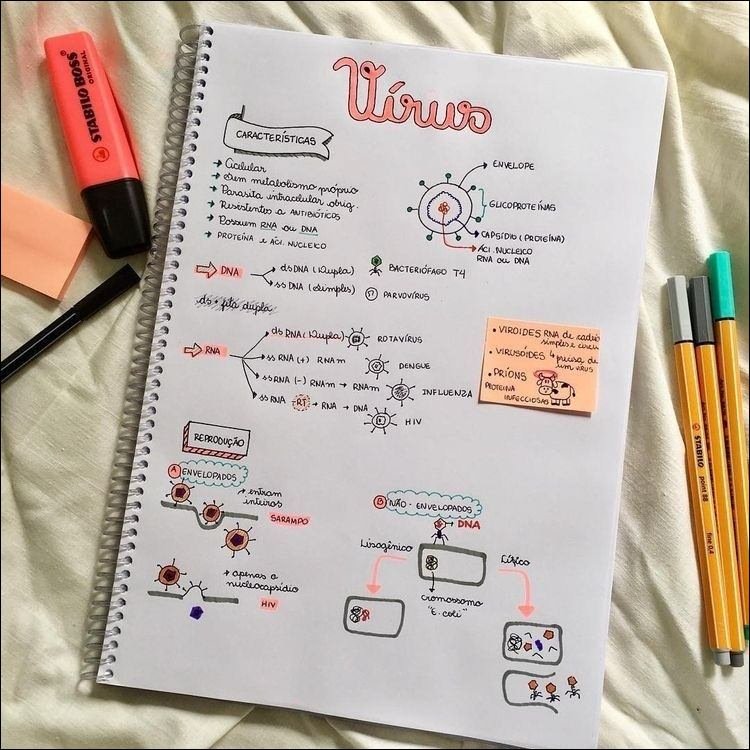 Vírus
CARACTERÍSTICAS
→ Acelular
→ Sem metabolismo próprio
→ Parasita intracelular obrig.
→ Resistentes a ANTIBIÓTICOS
→ Possuem RNA ou DNA
→ PROTEÍNA E ÁCI. NUCLEICO
ENVELOPE
GLICOPROTEÍNAS
CAPSÍDIO (PROTEÍNA)
ÁCI. NUCLEICO
RNA OU DNA
DNA
dsDNA (Dupla)
BACTERIÓFAGO T4
ssDNA (simples)
PARVOVÍRUS
ds → fita dupla
RNA
ds RNA (Dupla)
ROTAVÍRUS
ss RNA (+) RNAm
DENGUE
ssRNA (-) RNAm → RNAm
INFLUENZA
ssRNA -RT→ RNA → DNA
HIV
• VIROIDES RNA de cadeia
simples e circu
• VIRUSÓIDES
precisa de
um VÍRUS
• PRÍONS
PROTEINA
INFECCIOSAS
REPRODUÇÃO
A ENVELOPADOS
→ entram
inteiros
SARAMPO
→ apenas o
nucleocapsídio
HIV
B NÃO-ENVELOPADOS
→ DNA
Lisogênico
Lítico
cromossomo
"E. coli"
STABILO BOSS
ORIGINAL
STABILO
point 88
fine 0,4